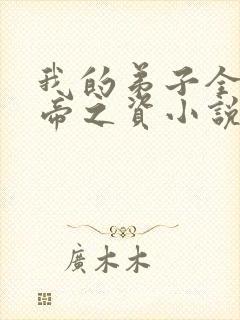 我的弟子全
帝之資小說
廣木木